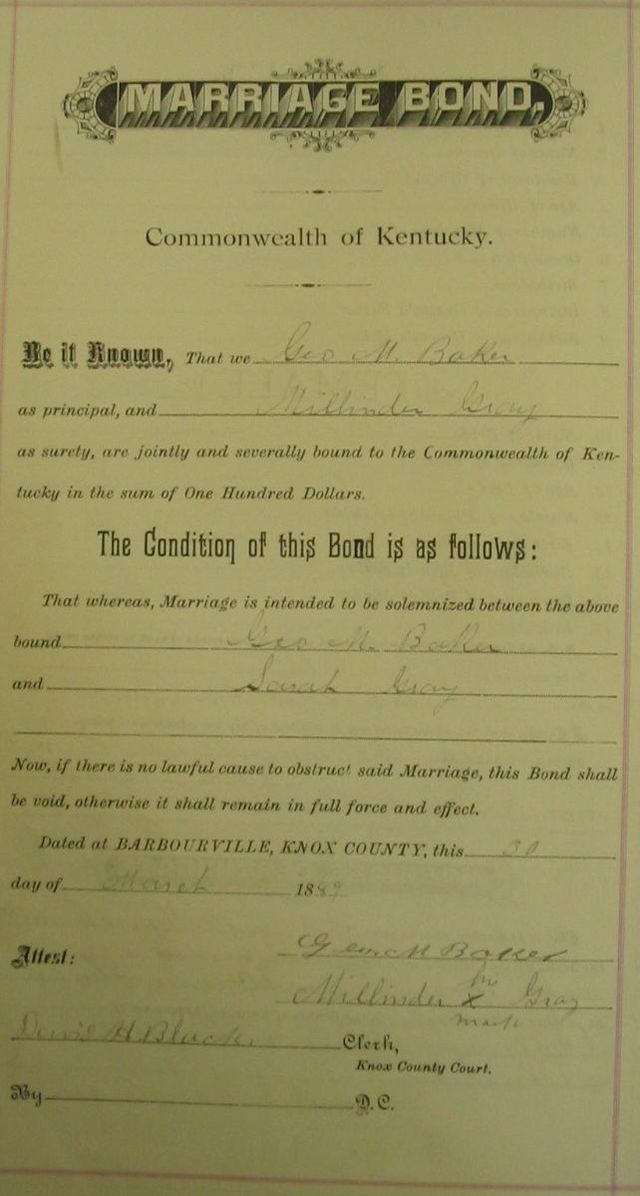 MARRIAGE BOND.
Commonwealth of Kentucky.
Be it Known, That we Geo M. Baker
as principal, and Millinder Gray
as surety, are jointly and severally bound to the Commonwealth of Ken-
tucky in the sum of One Hundred Dollars.
The Condition of this Bond is as follows:
That whereas, Marriage is intended to be solemnized between the above
bound Geo M. Baker
and Sarah Gray
Now, if there is no lawful cause to obstruct said Marriage, this Bond shall
be void, otherwise it shall remain in full force and effect.
Dated at BARBOURVILLE, KNOX COUNTY, this 30
day of March 1889
Attest: Geo M Baker
his
Millinder X Gray
mark
H. Black Clerk,
Knox County Court.
By D.C.